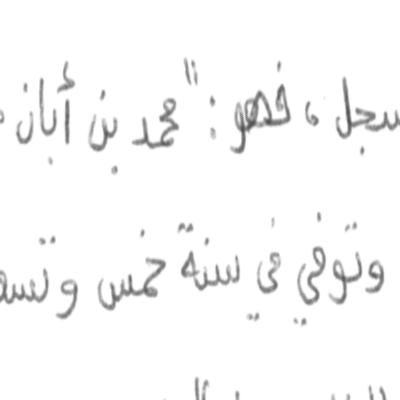 سجل، فهو: "محمد بن أبان
وتوفي في سنة خمس وتسع